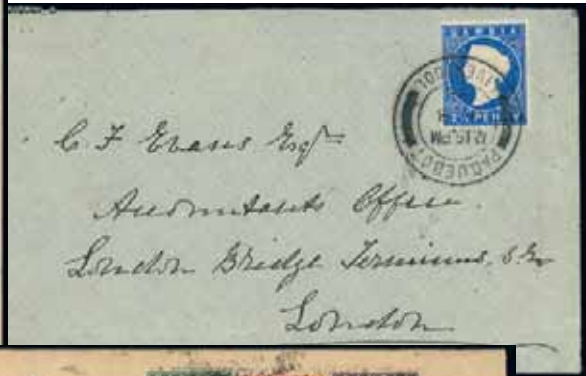 GAMBIA
LIVERPOOL
12.15 PM
PAQUEBOT
C F Evans Esqre
Accountants Office
London Bridge Terminus, S.E.
London